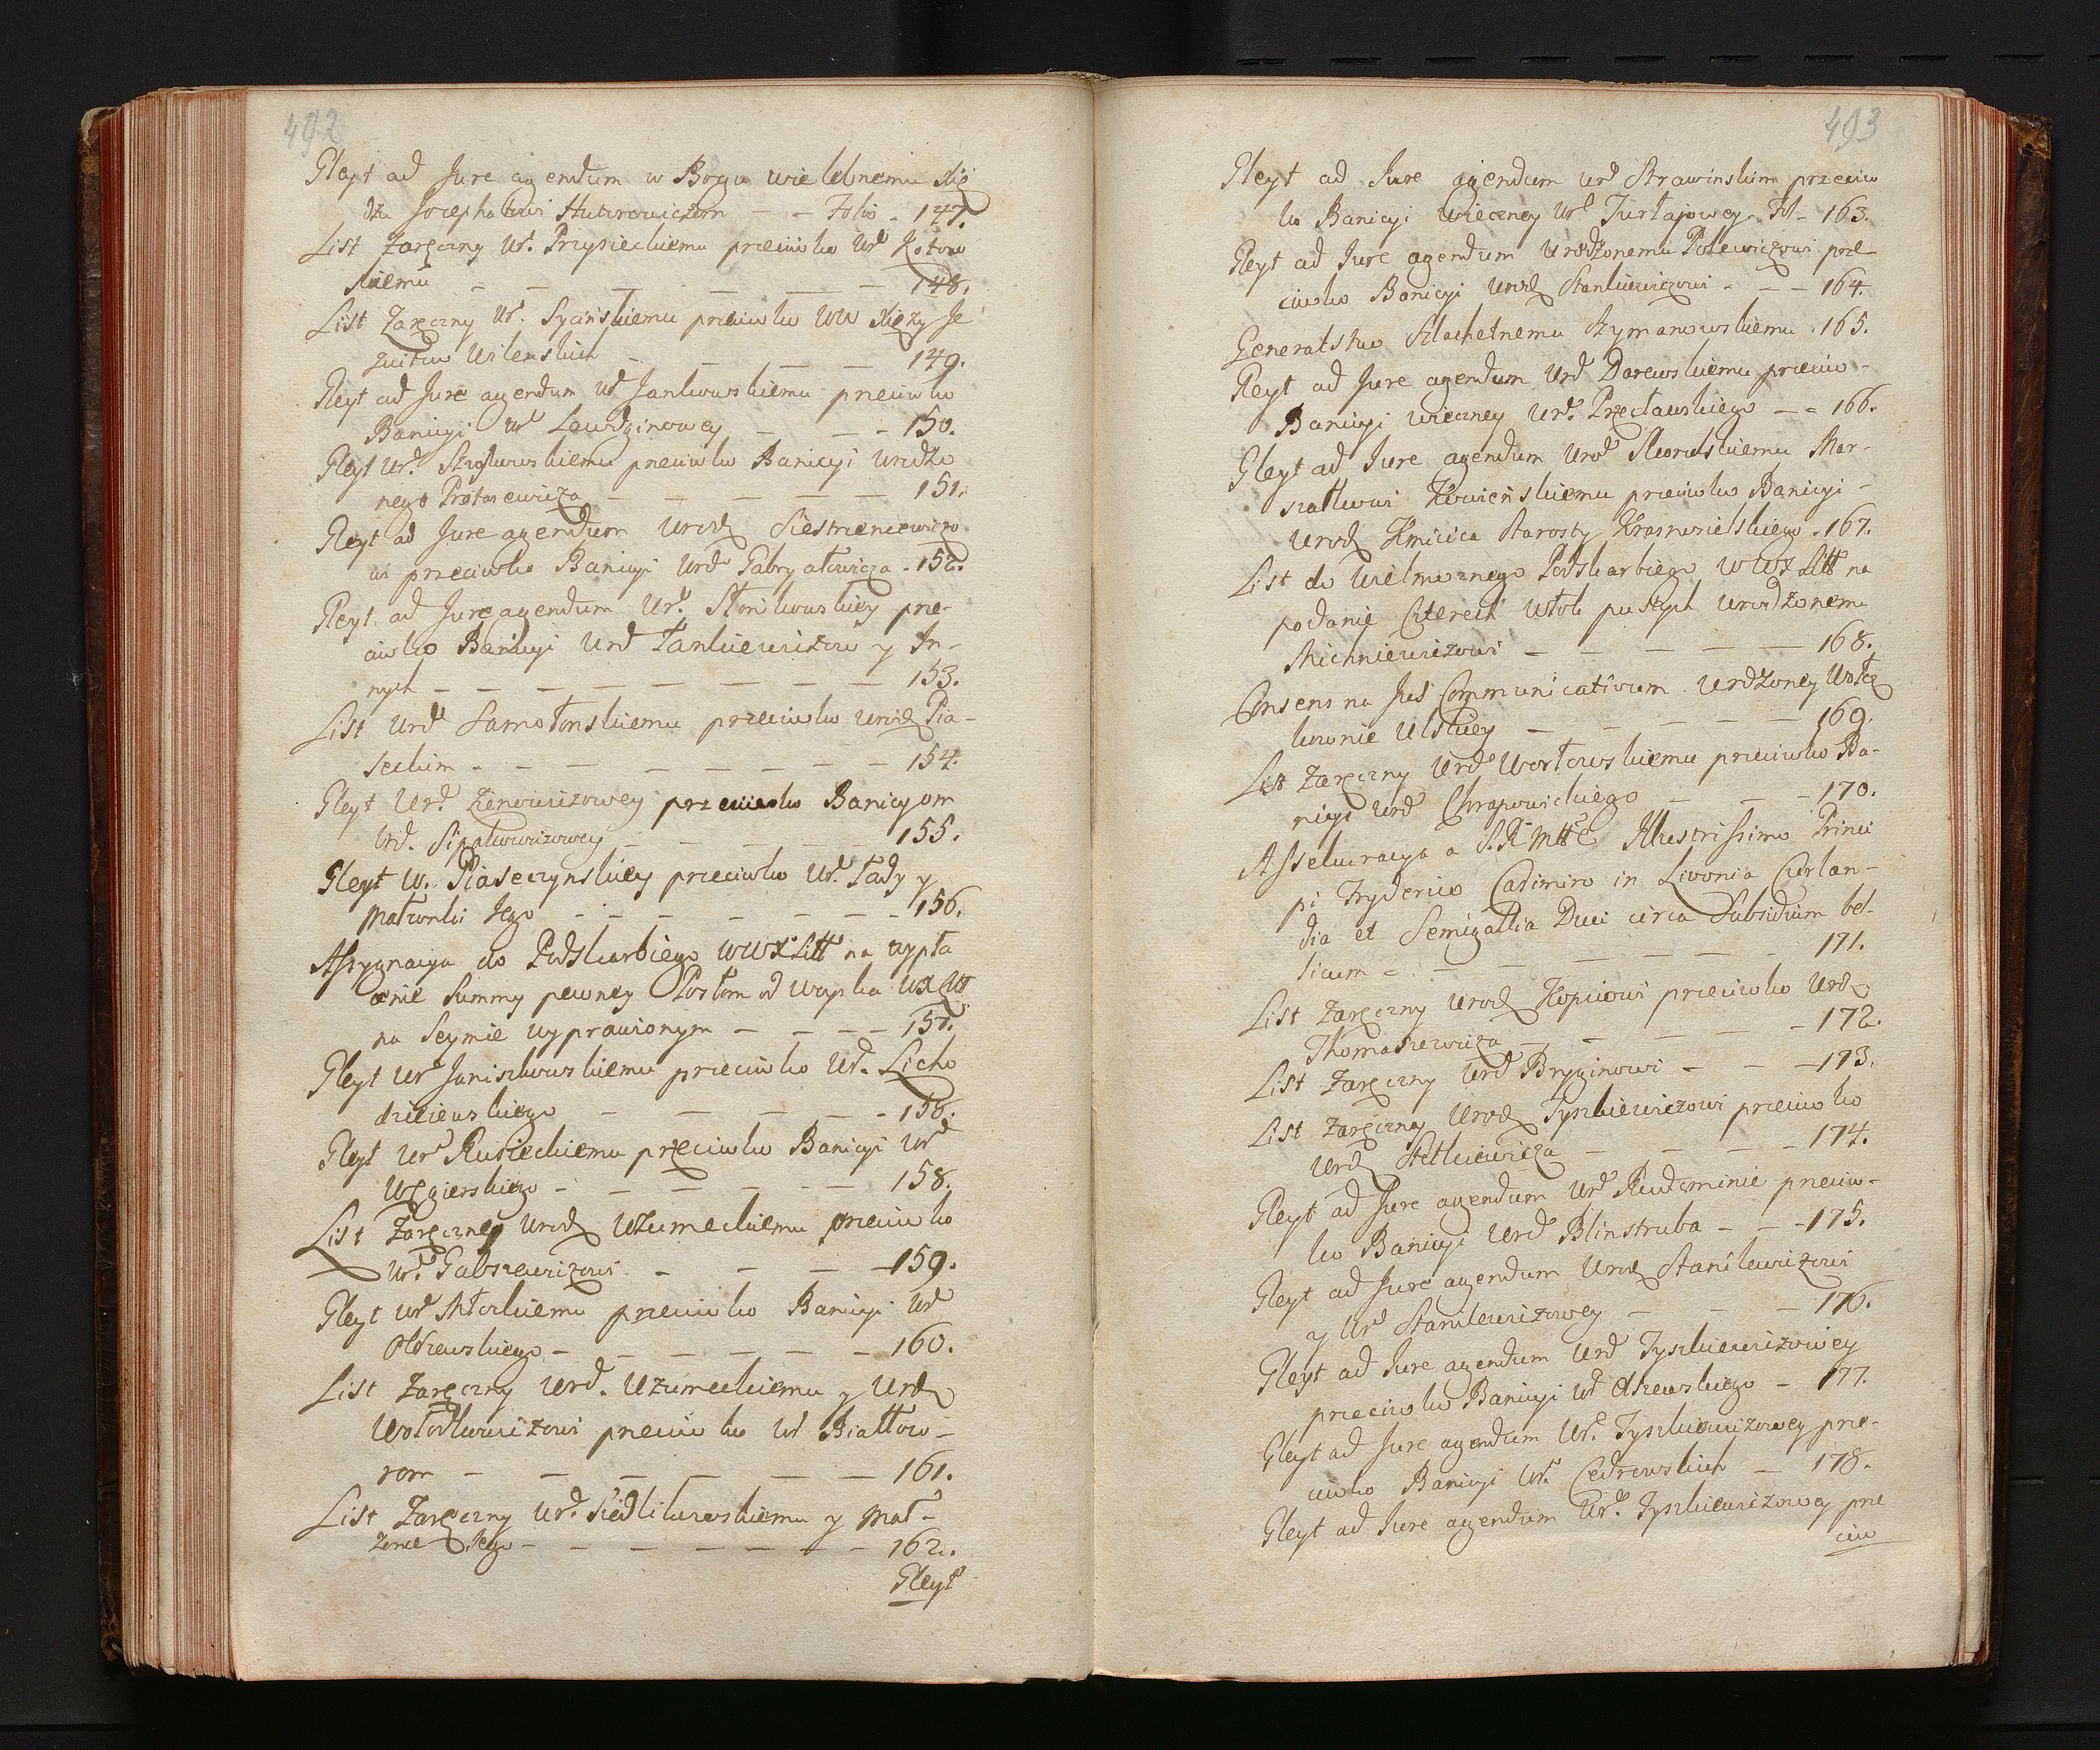 492
Gleyt ad Jure agendum w Bogu wielebnemu Xię
dzu Jozephatowi Hutorowiczom - - Folio - 147.
List Zaręczny Ur. Przysieckiemu przeciwko Urd Kotow
skiemu - - - - - - 148.
List Zaręczny Ur. Sycinskiemu przeciwko WW Xięży Je
zuitow Wilenskich - - - - 149.
Gleyt ad Jure agendum Ud Jankowskiemu przeciwko
Banicyi Ur Lawdzinowey - - - 150.
Gleyt Urd. przeciwko Banicyi Urodzo
nego Protasewicza - - - - - 151.
Gleyt ad Jure agendum Urodz Siestrzencewiczo
wi przeciwko Banicyi Urd Gabryałowicza - 152.
Gleyt ad Jure agendum Urd. prze-
ciwko Banicyi Urd Tankiewiczow y In-
nych - - - - - - - - 153.
List Urd przeciwko Urodz Pia-
seckim - - - - - - - 154.
Gleyt Urd. Zienowiczowey przeciwko Banicyom
Urd. - - - - - 155.
Gleyt W. Piaseczynskiey przeciwko Ur. Łady y
Małzonki Jego - - - - - - 156.
Assygnacya do Podskarbiego WWXLitt na zypła
cenie Summy pewney Posłom od Woyska WXLitt
na Seymie wyprawionym - - - - 157.
Gleyt Ur Janiszkowskiemu przeciwko Ur. Licho
dzieiewskiego - - - - - 156.
Gleyt Ur Rusieckiemu przeciwko Banicyi Ur
Węgierskiego - - - - - - 158.
List Zaręczny Urodz Uzumeckiemu przeciwko
Ur. Gabszewiczowi - - - - 159.
Gleyt Ur Młockiemu przeciwko Banicyi Ur
Olszewskiego - - - - - - 160.
List Zaręczny Urd. Uzumeckiemu y Urdz
Wołodkowiczowi przeciwko Ur Białłow-
rom - - - - - - 161.
List Zaręczny Urd. Siedlikowskiemu y Mał-
zonce Jego - - - - - - - 162.
Gleyt
493
Gleyt ad Jure agendum Urd Strawinskim przeciw
ko Banicyi Wieczney Ur Turłajowey. Fol- 163.
Gleyt ad Jure agendum Urodzonemu Polewiczowi prze-
ciwko Banicyi Urodz Stankiewiczowi - - - 164.
Generalstwo Szlachetnemu Szymanowskiemu . 165.
Gleyt ad Jure agendum Urd Darewskiemu przeciw-
Banicyi wieczney Urd. Przecławskiego - - 166.
Gleyt ad Jure agendum Urod Skorulskiemu Mar-
szałkowi Kowieńskiemu przeciwko Banicyi -
Urodz Kmicica Starosty Krasnosielskiego . 167.
List do Wielmoznego Podskarbiego WWXLitt na
podanię Czterech Włok pustych Urodzonemu
Michniewiczowi - - - - - 168.
Consens na Jus Communicativum Urdzoney Wołcz
kownie Ulskiey - - - - - 169.
List Zaręczny Urd Worłowskiemu przeciwko Ba-
nicyi Urd Chrapowickiego - - - 170.
Assekuracya a S.R.Mtte Illustrissimo Princi
pi Fryderico Casimiro in Livonia Curlan-
dia et Semigallia Duci circa Subsidium bel-
licum - - - - - - - 171.
List Zaręczny Urodz Kopciowi przeciwko Urdz
Thomaszewicza - - - - - 172.
List Zaręczny Urd Bryginowi - - - 173.
List Zaręczny Urodz Tyszkiewiczowi przeciwko
Urdz Stetkiewicza - - - - 174.
Gleyt ad Jure agendum Urd Rudominie przeciw-
ko Banicyi Urd Blinstruba - - - 175.
Gleyt ad Jure agendum Urodz Stanilewiczowi
y Urd Stanilewiczowey - - - 176.
Gleyt ad Jure agendum Urd Tyszkiewiczowey
przeciwko Banicyi Ur Olszewskiego - 177.
Gleyt ad Jure agendum Ur. Tyszkiewiczowey prze-
ciwko Banicyi Ur. Cedrowskich - 178.
Gleyt ad Jure agendum Urd. Tyszkiewiczowey prze
ciw